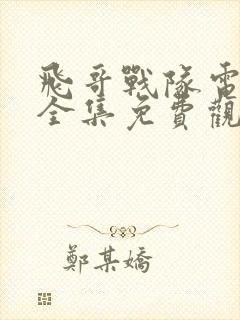 飛哥戰隊電
全集免費觀
鄭某嬌